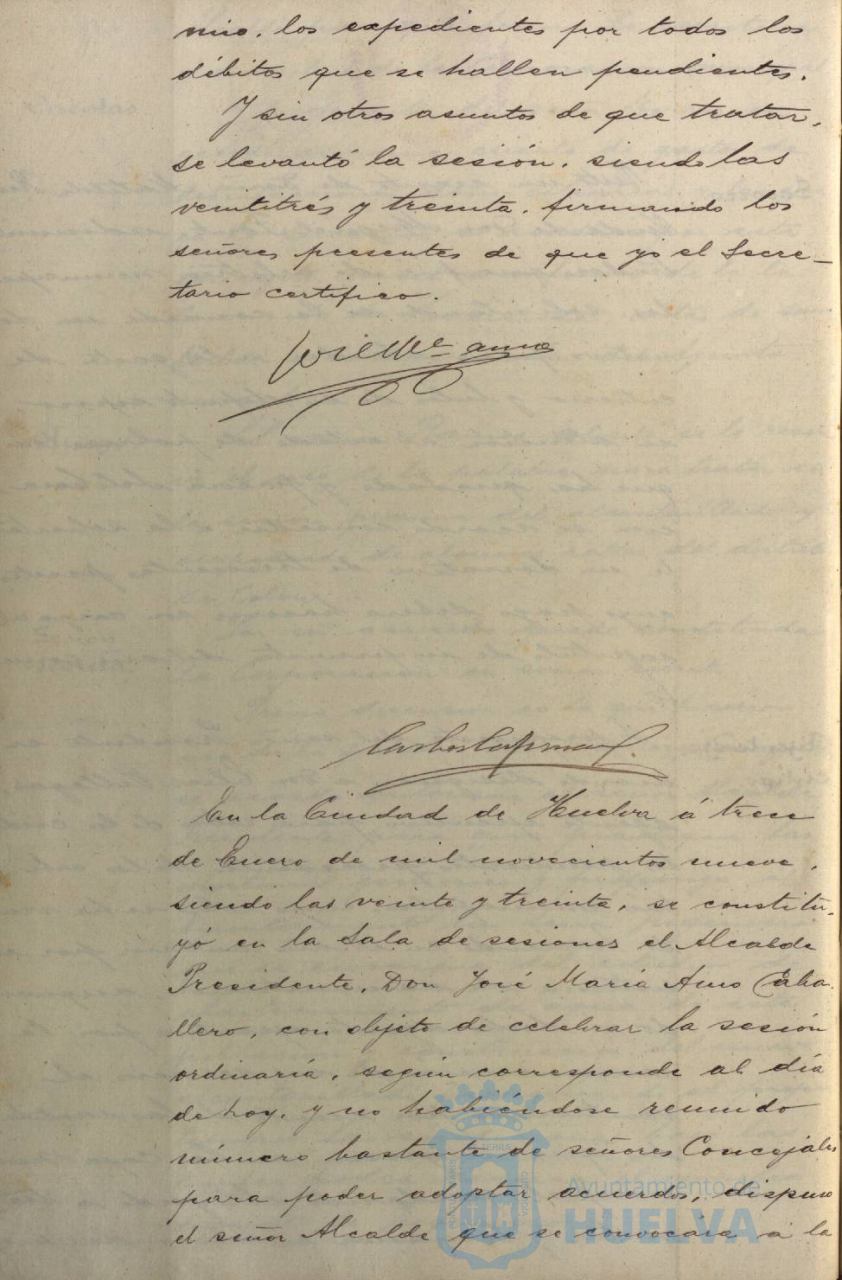 mio, los expedientes por todos los
débitos que se hallen pendientes.
Y sin otros asuntos de que tratar,
se levantó la sesión, siendo las
veintitrés y treinta, firmando los
señores presentes de que yo el Secre-
tario certifico.
José Mª Amo
Carlos
En la Ciudad de Huelva á trece
de Enero de mil novecientos nueve,
siendo las veinte y treinta, se constitu-
yó en la Sala de sesiones el Alcalde
Presidente, Don José María Amo Caba-
llero, con objeto de celebrar la sesión
ordinaria, según corresponde al día
de hoy, y no habiéndose reunido
número bastante de señores Concejales
para poder adoptar acuerdos, dispuso
el señor Alcalde que se convocára á la
Ayuntamiento de
HUELVA